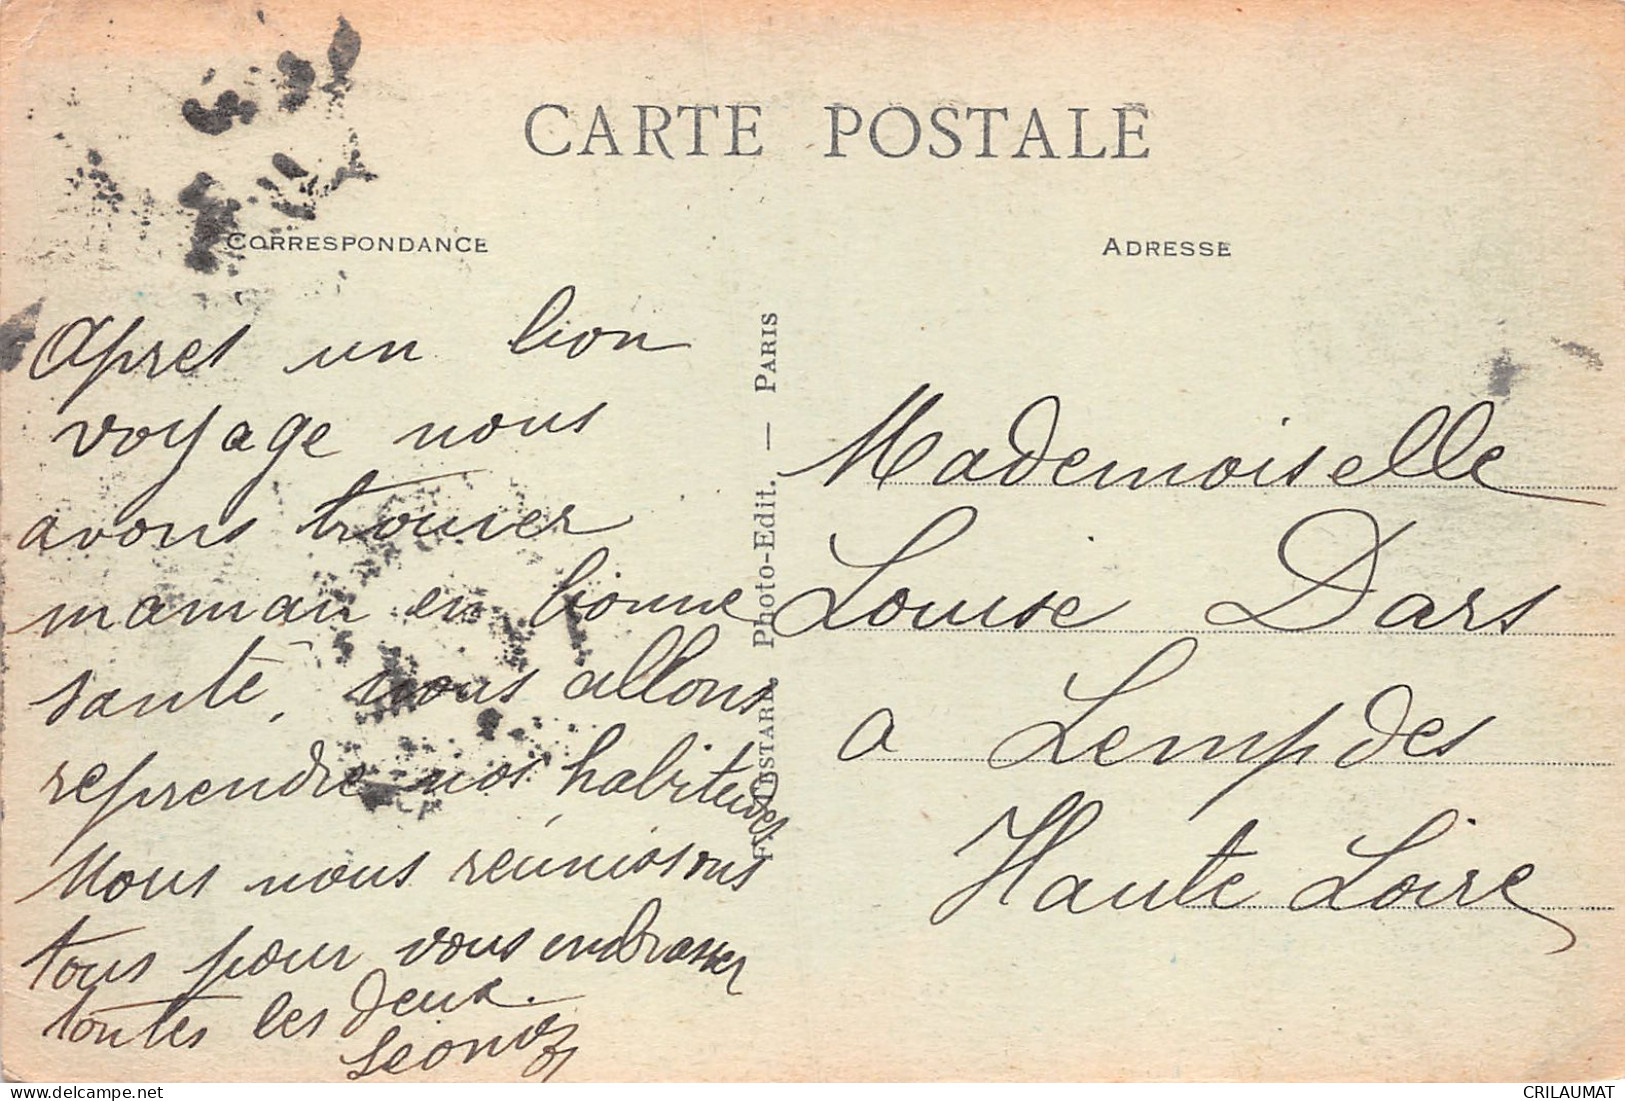 CARTE POSTALE
CORRESPONDANCE
ADRESSE
Apres un bon
voyage nous
avons trouver
maman en bonne
santé, nous allons
reprendre nos habitudes
Nous nous réunissons
tous pour vous embrasser
toutes les deux.
Photo-Edit. — PARIS
Mademoiselle
Louise Dars
a Lempdes
Haute Loire
delcampe.net
CRILAUMAT